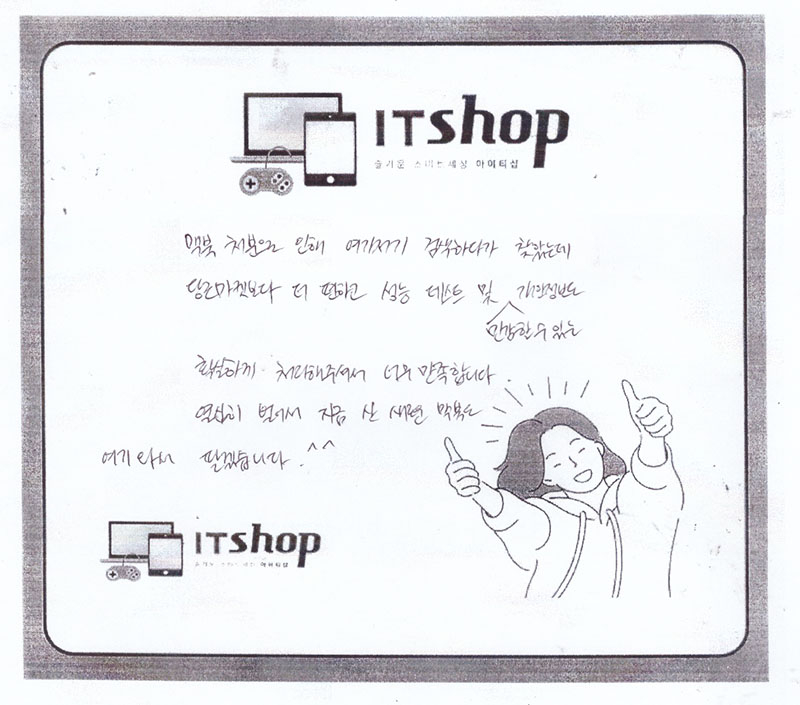 ITshop
즐거운 스마트세상 아이티샵
맥북 처분으로 인해 여기저기 검색하다가 찾았는데
당근마켓보다 더 편하고 성능 테스트 및 개인정보도
민감할 수 있는
확실하게 처리해주셔서 너무 만족합니다.
열심히 벌어서 지금 산 새로운 맥북도
여기 와서 팔겠습니다. ^^
ITshop
즐거운 스마트세상 아이티샵